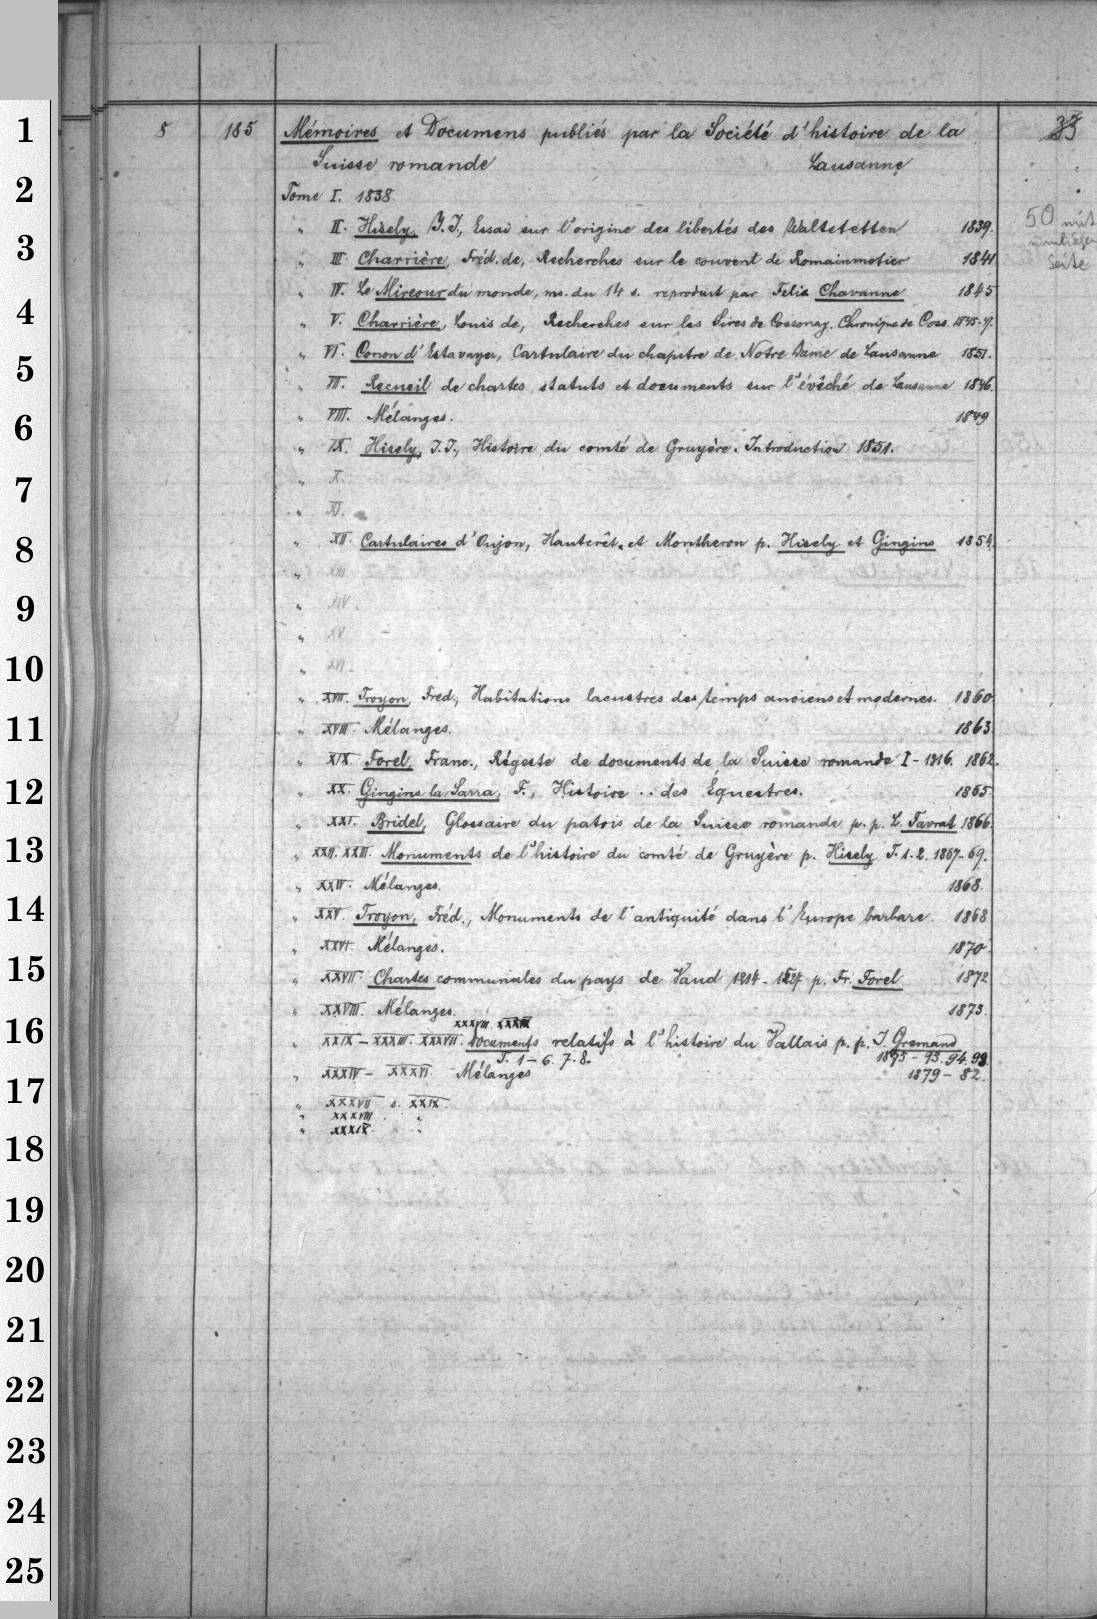 8 185 Mémoires et Documens publiés par la Société d'histoire de la 33
Suisse romande Lausanne
Tome I. 1838.
" II. Hisely, J.J., Essai sur l'origine des libertés des Waltstetten 1839. 50 mit
" III. Charrière, Fréd. de, Recherches sur le couvent de Romainmotier 1841 Seite
" IV. Le Mireour du monde, ms. du 14 s. reproduit par Felix Chavanne 1845
" V. Charrière, Louis de, Recherches sur les Sires de Cossonay. Chronique de Coss. 1845-7.
" VI. Conon d'Estavayer, Cartulaire du chapitre de Notre Dame de Lausanne 1851.
" VII. Recueil de chartes, statuts et documents sur l'évêché de Lausanne 1846.
" VIII. Mélanges. 1849
" IX. Hisely, J.J., Histoire du comté de Gruyère. Introduction 1851.
" X.
" XI.
" XII. Cartulaires d'Oujon, Hautcrêt, et Montheron p. Hisely et Gingins 1854.
" XIII
" XIV.
" XV
" XVI
" XVII. Troyon, Fred., Habitations lacustres des temps anciens et modernes. 1860.
" XVIII. Mélanges. 1863.
" XIX. Forel, Franc., Régeste de documents de la Suisse romande I - 1316. 1862.
" XX. Gingins la Sarra, F., Histoire .. des Équestres. 1865.
" XXI. Bridel, Glossaire du patois de la Suisse romande p. p. L. Favrat 1866.
" XXII. XXIII. Monuments de l'histoire du comté de Gruyère p. Hisely T. 1.2. 1867-69.
" XXIV. Mélanges. 1868.
" XXV. Troyon, Fréd., Monuments de l'antiquité dans l'Europe barbare. 1868
" XXVI. Mélanges. 1870.
" XXVII. Chartes communales du pays de Vaud 1214 - 1527 p. Fr. Forel 1872
" XXVIII. Mélanges. 1873.
XXXVIII. XXXIX
" XXIX - XXXIII. XXXVII. Documents relatifs à l'histoire du Vallais p. p. J. Gremaud
T. 1-6. 7. 8. 1875 - 93. 94. 98.
" XXXIV - XXXVI. Mélanges 1879 - 82.
" XXXVII s. XXIX.
" XXXVIII. " "
" XXXIX. " "
1
2
3
4
5
6
7
8
9
10
11
12
13
14
15
16
17
18
19
20
21
22
23
24
25